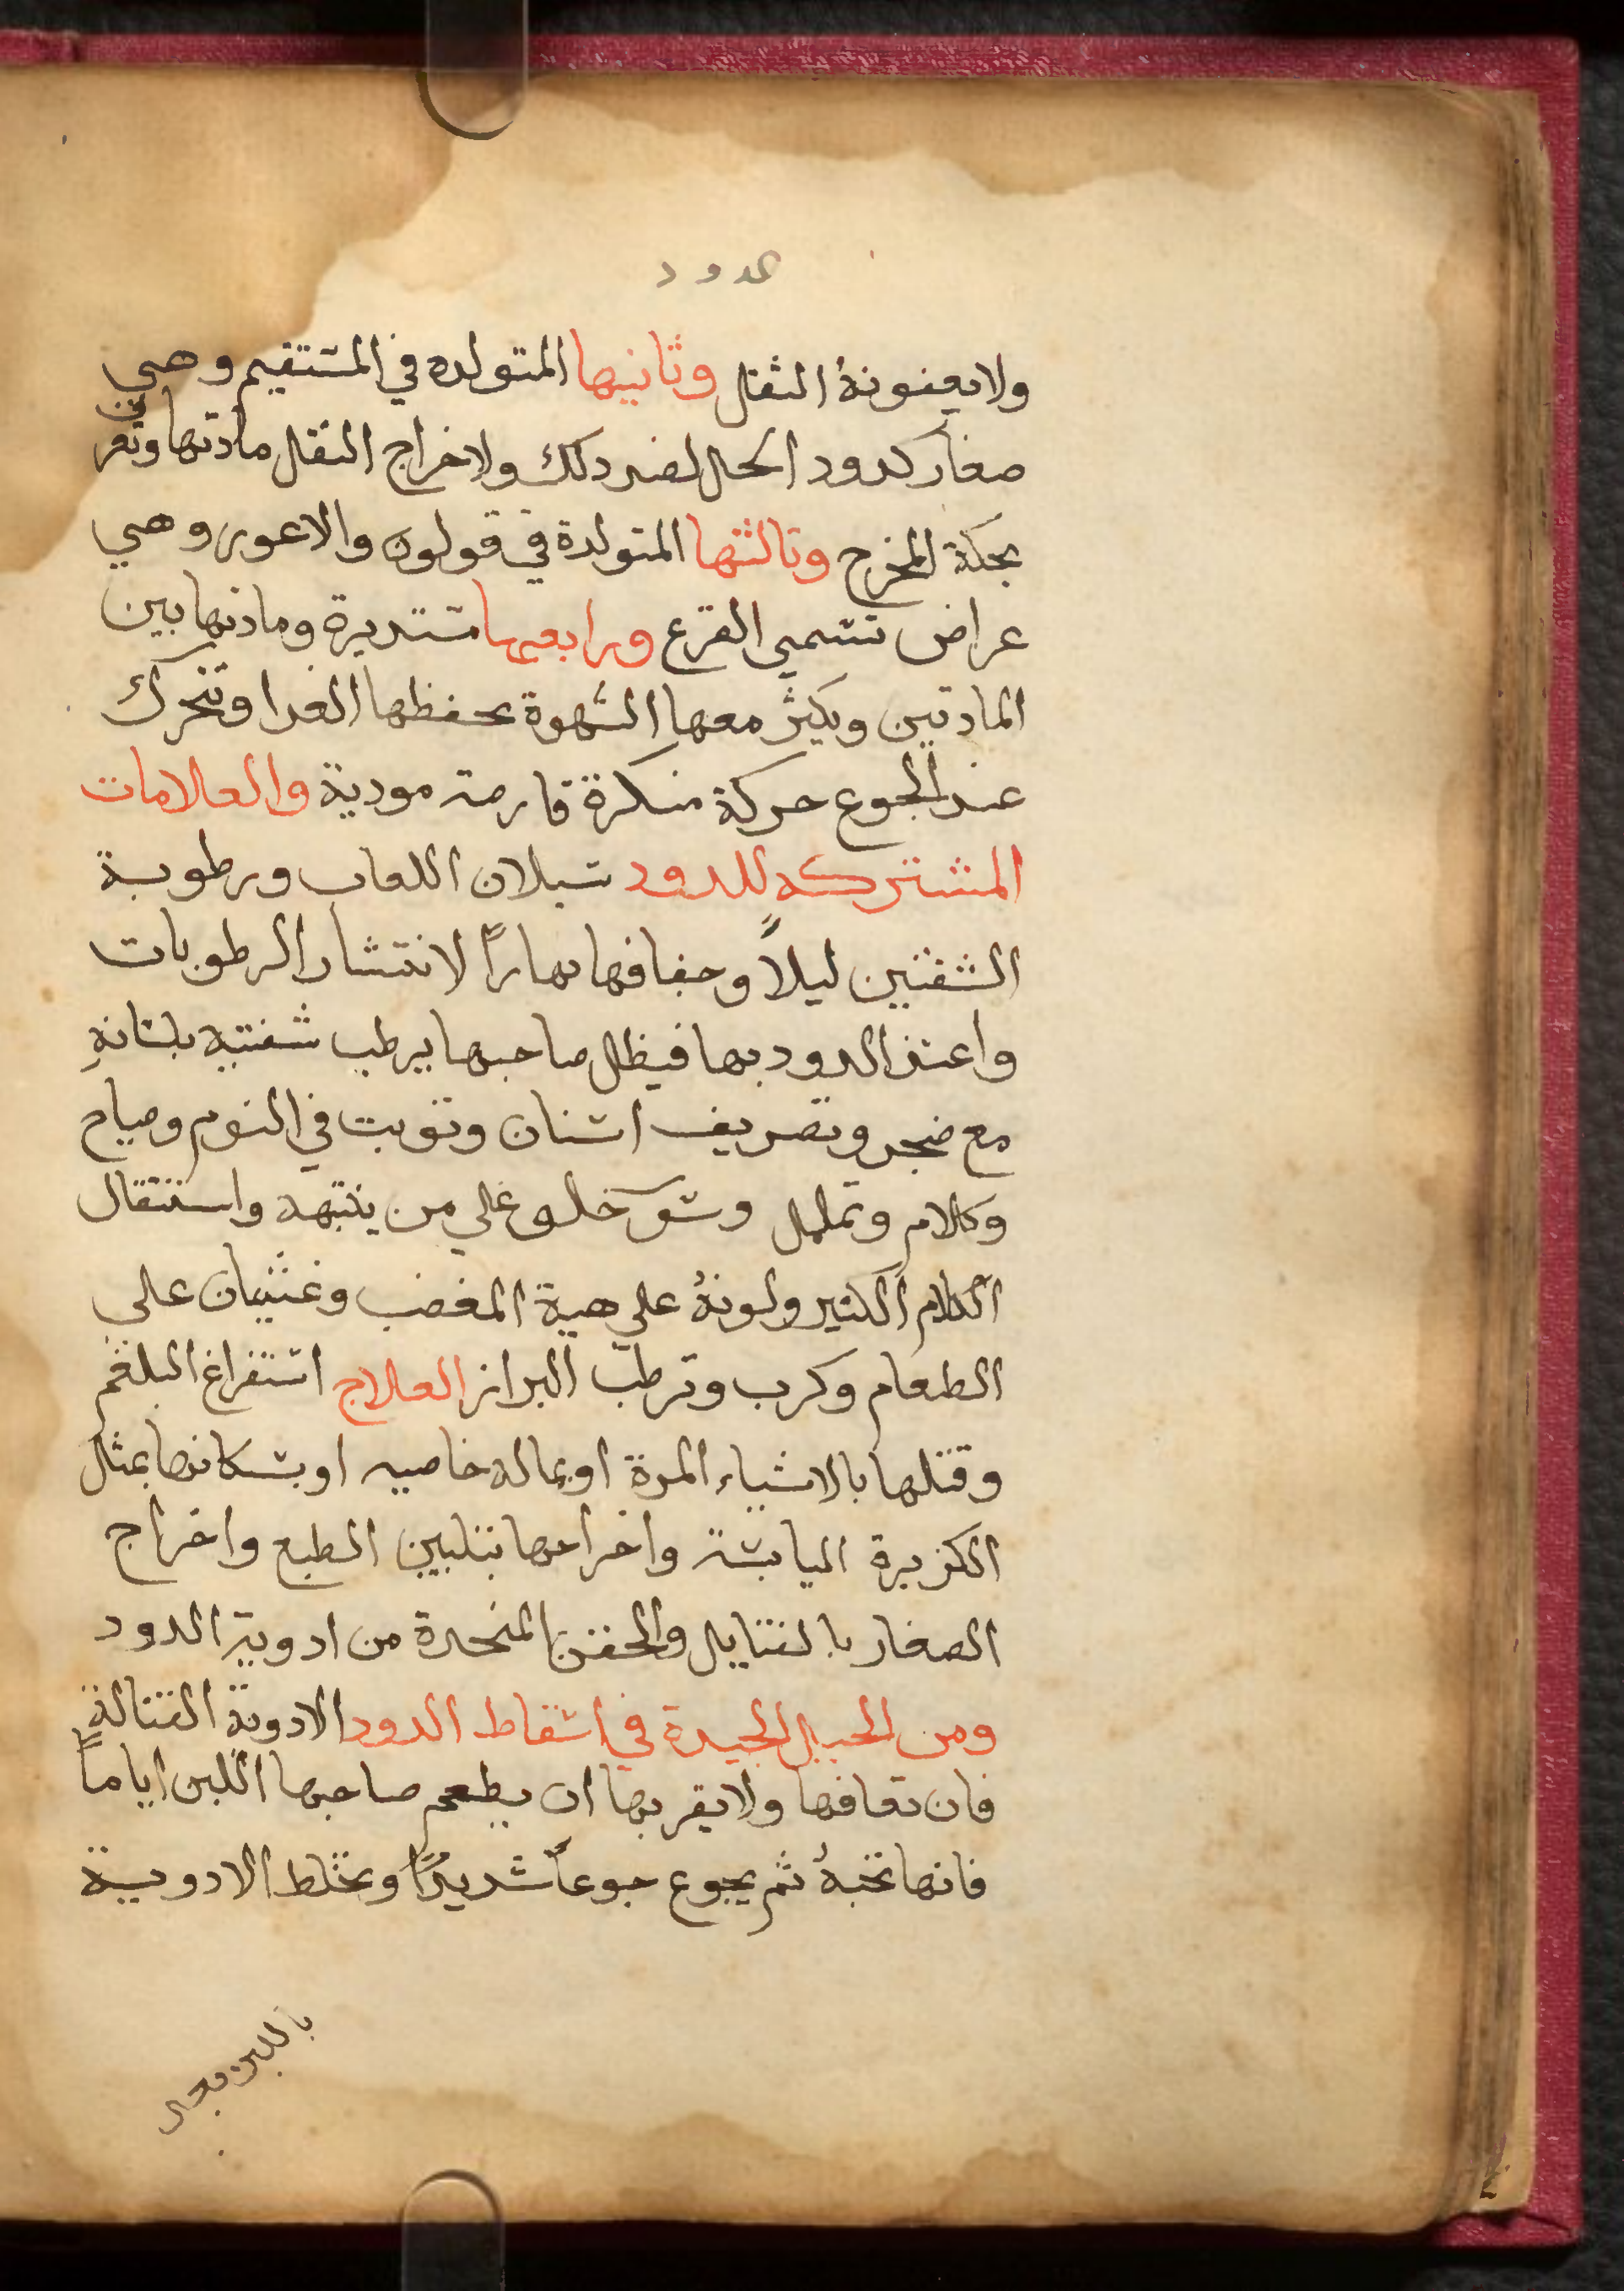 الدود
ولا بعفونة الثفل وثانيها المتولده في المستقيم وهي
صغار كدود الخل لضد ذلك ولاخراج الثفل مادتها وتعرف
بحكة المخرج وثالثتها المتولدة في قولون والاعور وهي
عراض تسمي القرع ورابعها مستديرة ومادتها بين
المادتين ويكثر معها الشهوة بحفظها الغدا وتتحرك
عند الجوع حركة منكرة قارصة موذية والعلامات
المشتركه للدود سيلان اللعاب ورطوبة
الشفتين ليلاً وجفافها نهاراً لانتشار الرطوبات
واغتذ الدود بها فيظل صاحبها يرطب شفتيه بلسانهِ
مع ضجر وتصريف اسنان وتوبت في النوم وصياح
وكلام وتململ وسو خلق علي من ينتبهه واستثقال
الكلام الكثير ولونهُ علي هية المغضب وغثيان على
الطعام وكرب وترطب البراز العلاج استفراغ البلغم
وقتلها بالاشياء المرة او بماله خاصيه او بسكاتها بمثل
الكزبرة اليابسة واخراجها بتليين الطبع واخراج
الصغار بالفتايل والحقن المتخدة من ادوية الدود
ومن الحيل الجيدة في اسقاط الدود الادوية القتالة
فان تعافها ولا يقربها ان يطعم صاحبها اللبن اياماً
فانها تحبهُ ثم يجوع جوعاً شديدًا ويخلط الادوية
باللبن بعد